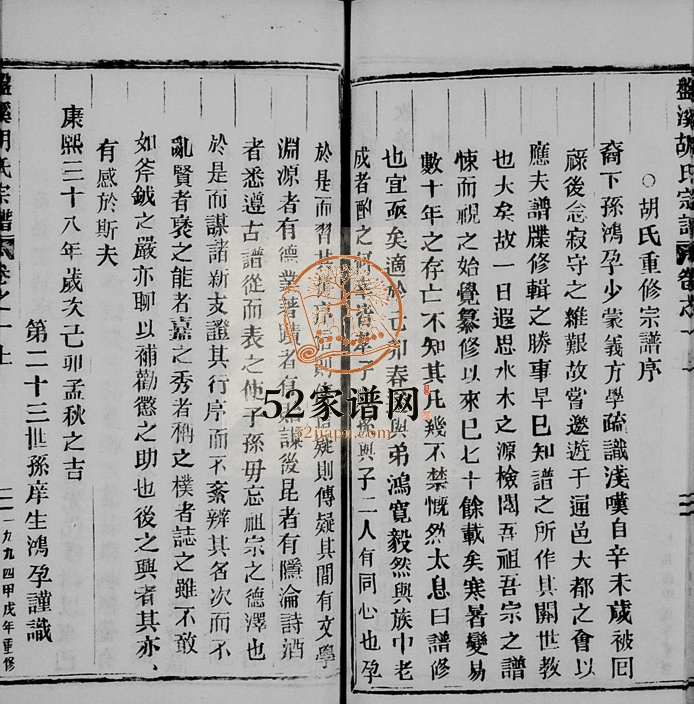 盤溪胡氏宗譜 卷之一 上
胡氏重修宗譜序
裔下孫鴻孕少蒙義方學疏識淺嘆自辛未歲被囘
祿後念寂守之維艱故嘗遨遊于逼邑大都之會以
應夫譜牒修輯之勝事早已知譜之所作其關世教
也大矣故一日遐思水木之源檢閱吾祖吾宗之譜
悚而視之始覺纂修以來已七十餘載矣寒暑變易
數十年之存亡不知其凡幾不禁慨然太息曰譜修
也宜亟矣適於己卯春與弟鴻寬毅然與族中老
成者酌之何幸 與子二人有同心也孕
於是而習 疑則傳疑其間有文學
淵源者有德業著蹟者有 謀後昆者有隱淪詩酒
者悉遵古譜從而表之使子孫毋忘祖宗之德澤也
於是而謀諸新支證其行序而不紊辨其名次而不
亂賢者褒之能者嘉之秀者稱之樸者誌之雖不敢
如斧鉞之嚴亦聊以補勸懲之助也後之興者其亦
有感於斯夫
康熙三十八年歲次己卯孟秋之吉
第二十三世孫庠生鴻孕謹識
盤溪胡氏宗譜 卷之一 上
一九九四甲戌年重修
52家谱网
52jiapu.com